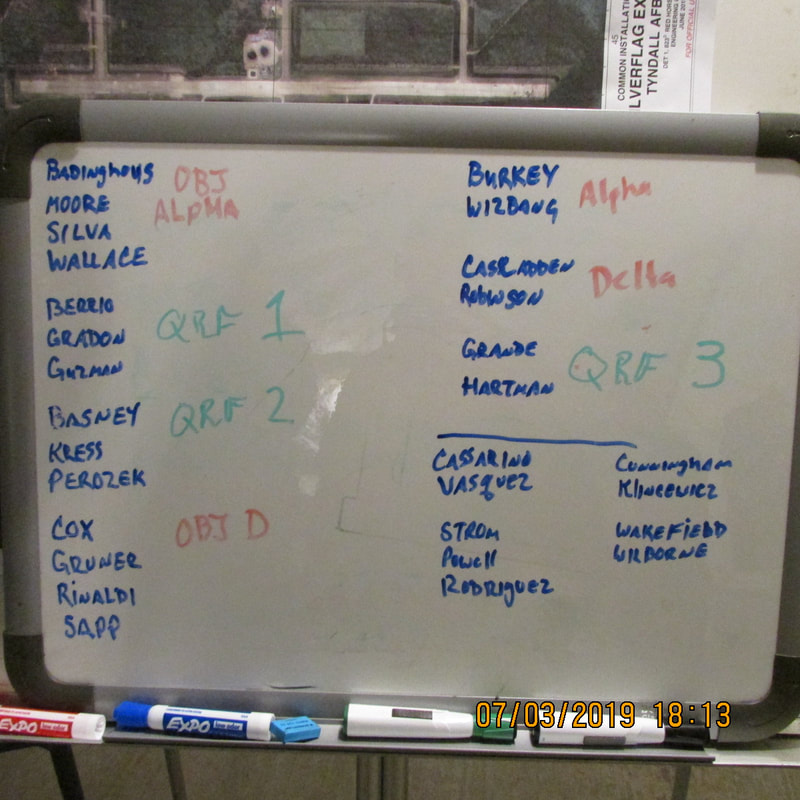 Badinghous OBJ
MOORE ALPHA
SILVA
WALLACE
BERRIO
GRADON QRF 1
Guzman
BASNEY QRF 2
KRESS
PEROZEK
COX OBJ D
GRUNER
RINALDI
SAPP
BURKEY Alpha
WIZBANG
CASRADDEN Delta
RObWSON
GRANDE QRF 3
HARTMAN
CASSARINO
VASQUEZ
STROM
Powell
RODRIguEZ
Cunningham
Klincewicz
WAKEFIELD
WILBORNE
45
COMMON INSTALLA
LVERFLAG EX
TYNDALL AFB
DET 1, 823D RED HORSE
ENGINEERING
JUNE 201
FOR OFFICIAL U
EXPO
EXPO
07/03/2019 18:13